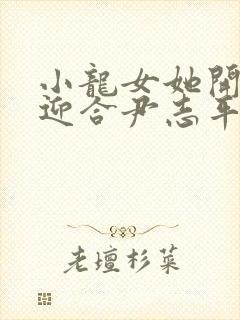 小龍女她開
迎合尹志平
老壇杉菜